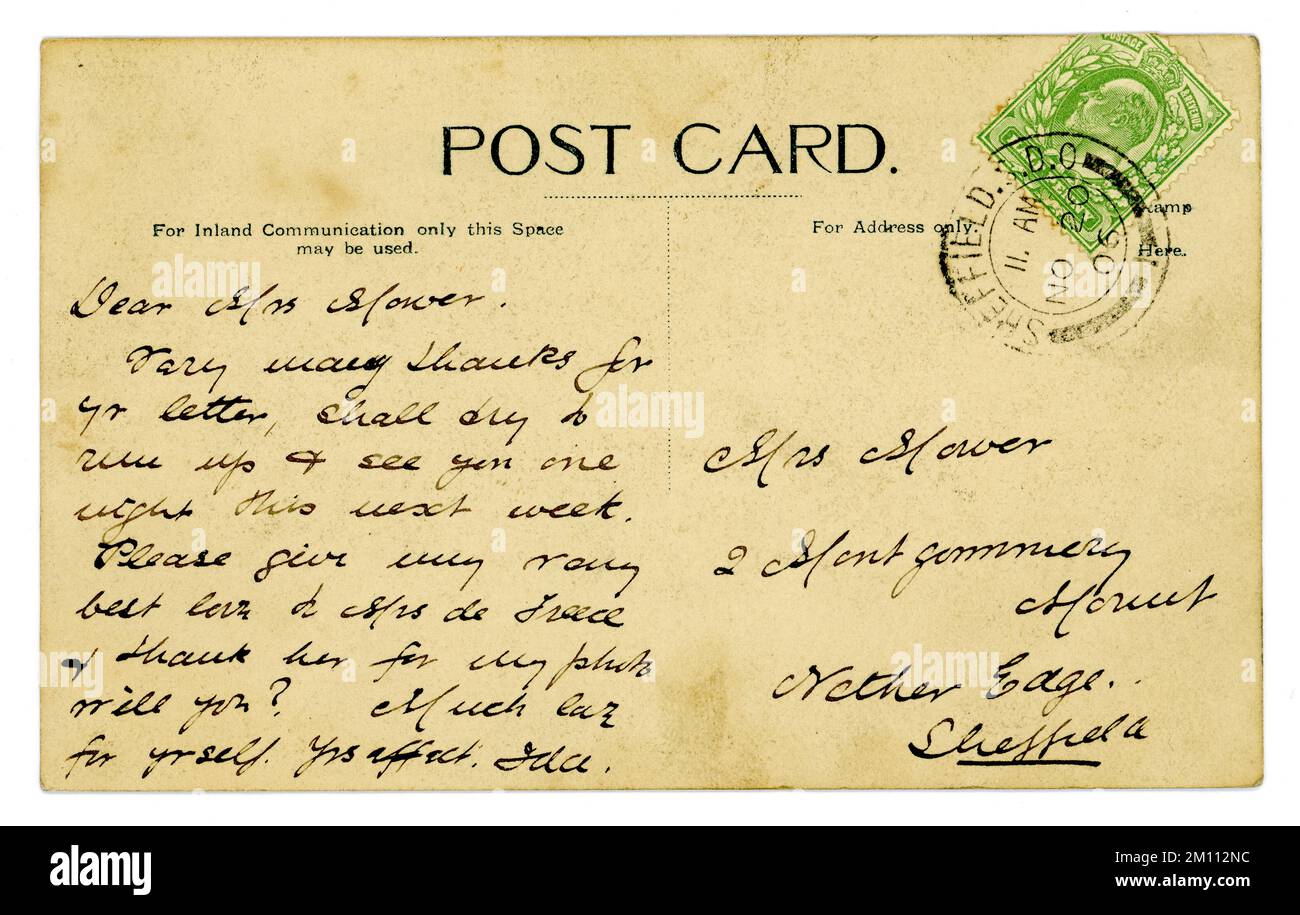 POST CARD.
For Inland Communication only this Space
may be used.
For Address only.
Stamp
Here.
POSTAGE
REVENUE
SHEFFIELD. S.D.O
11. AM
NO 20
06
Dear Mrs Mower.
Very many thanks for
yr letter, shall try to
run up & see you one
night this next week.
Please give my very
best love to Mrs de Freece
& thank her for my photo
will you? Much love
for yrself. Yrs affect. Ida.
Mrs Mower
2 Montgommery
Mount
Nether Edge.
Sheffield
alamy
a
alamy
Image ID: 2M112NC
www.alamy.com